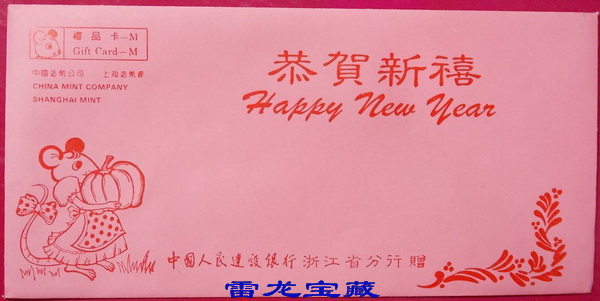 禮品卡—M
Gift Card—M
中國造幣公司 上海造幣廠
CHINA MINT COMPANY
SHANGHAI MINT
恭賀新禧
Happy New Year
中國人民建設银行浙江省分行贈
雷龙宝藏